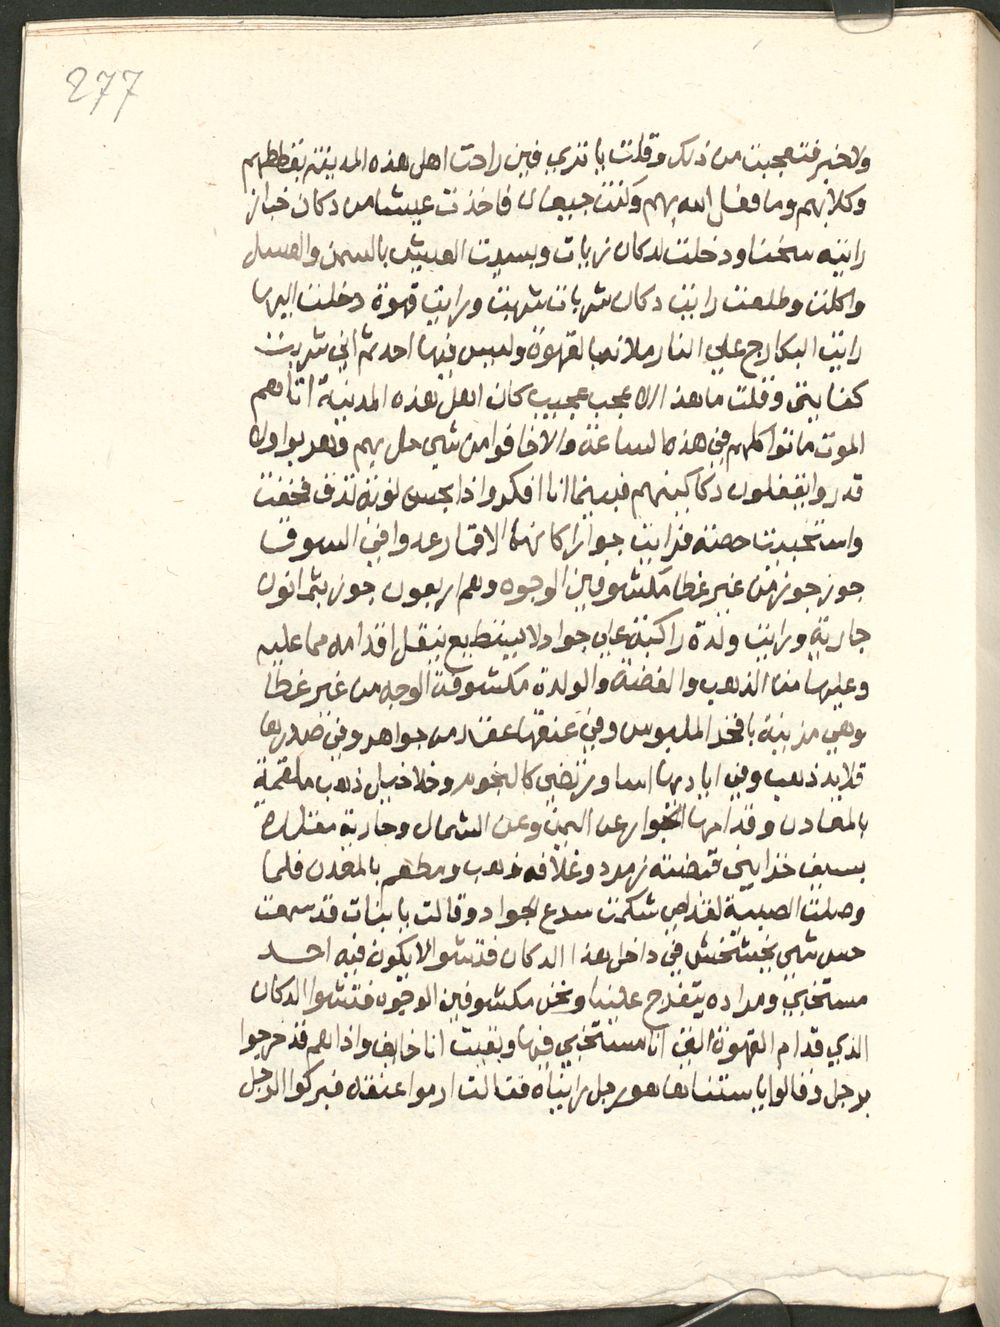 277
ولا خبر فتعجبت من ذلك وقلت يا تري فين راحت اهل هذه المدينة بقططهم
وكلابهم وما فعل الله بهم وكنت جيعان فاخذت عيشا من دكان خباز
رايته سخنا ودخلت لدكان زيات وبسيت العيش بالسمن والعسل
واكلت وطلعت رايت دكان شربات شربت ورايت قهوة دخلت اليها
رايت البكارج علي النار ملانه بالقهوة وليس فيها احد ثم اني شربت
كفايتي وقلت ما هذا الا عجب عجيب كان اهل هذه المدينة اتاهم
الموت ماتوا كلهم في هذه الساعة والا خافوا من شي حل بهم فهربوا ولا
قدروا يقفلون دكاكينهم فبينما انا افكر واذا بحس نوبة تدق فخفت
واستخبيت حصة فرايت جوارا كانها الاقمار عدوا في السوق
جوز جوز من غير غطا مكشوفين الوجوه وهم اربعون جوز بثمانون
جارية ورايت ولدة راكبة علي جواد لا يستطيع ينقل اقدامه مما عليه
وعليها من الذهب والفضة والولدة مكشوفة الوجه من غير غطا
وهي مزينة بافخر الملبوس وفي عنقها عقد من جواهر وفي صدرها
قلايد ذهب وفي اياديها اساور تضي كالنجوم وخلاخيل ذهب ملقمة
بالمعادن وقدامها الجوار عن اليمين وعن الشمال وجارية مقلدة
بسيف قبضته زمرد وغلافه ذهب ومطعم بالمعدن فلما
وصلت الصبية لقداص شكمت سرع الجواد وقالت يا بنات قد سمعت
حس شي بخشخش في داخل هذا الدكان فتشوا لا يكون فيه احد
مستخبي ومراده يتفرج علينا ونحن مكشوفين الوجوه ففتشوا الدكان
الذي قدام القهوة الذي انا مستخبي فيها وبقيت انا خايف واذا هم قد خرجوا
برجل وقالوا يا ستنا ها هو رجل راينياه فقالت ارموا عنقه فبركوا الرجل